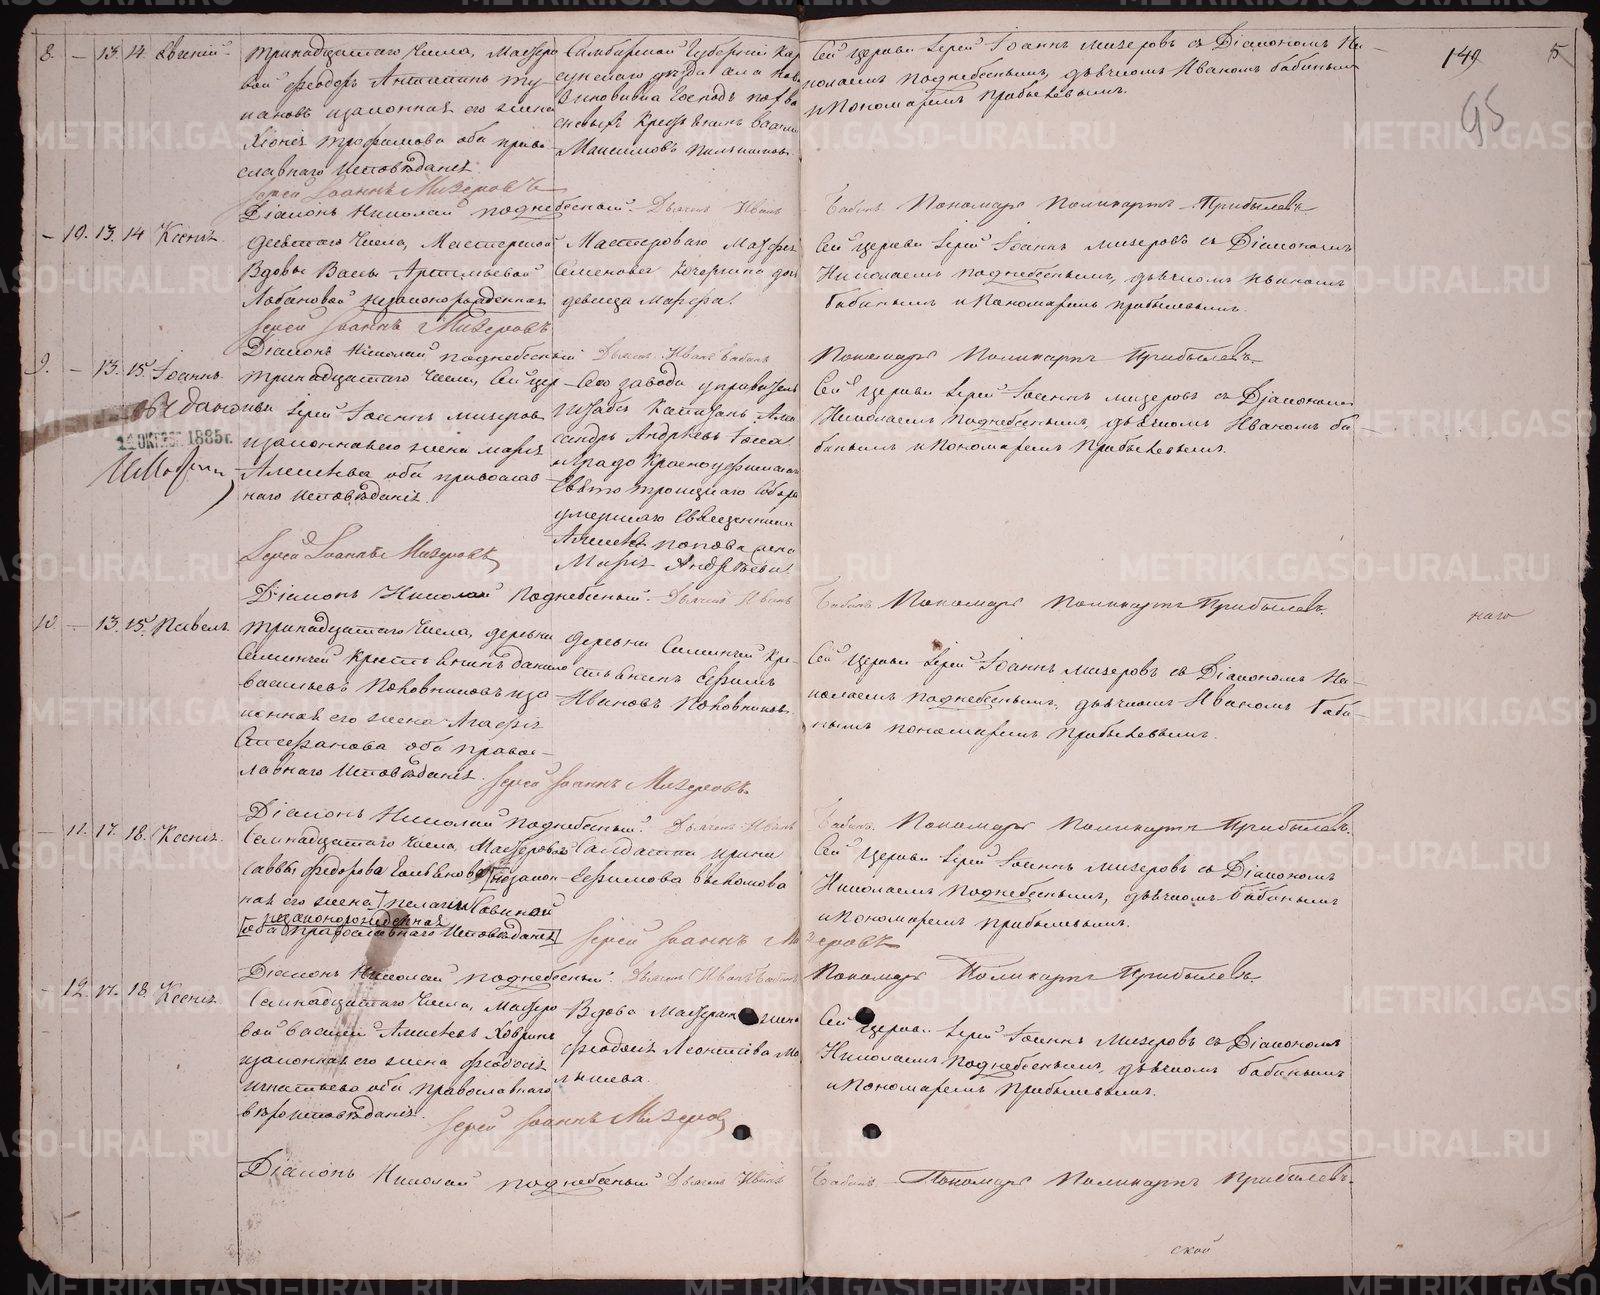 8. — 13. 14. Евгений.
Тринадцатаго числа, Мастеро
вой Феодоръ
изаконная его жена
Хіонія Трофимова оба право
славнаго исповѣданія.
Симбирской Губерніи
Максимовъ
Сей церкви Іерей Іоаннъ Мизеровъ съ Діакономъ Ни-
колаемъ Поднебеснымъ, дьячкомъ Иваномъ Бабинымъ
и Пономаремъ Прибылевымъ.
149
5
95
Іерей Іоаннъ Мизеровъ
Діаконъ Николай Поднебесный. Дьячекъ Иванъ Бабинъ. Пономарь Поликарпъ Прибылевъ
— 10. 13. 14 Ксенія.
Десятаго числа, Мастерской
Вдовы Васы Артемьевой
Лобановой незаконорожденная
Мастероваго
Семеновича Кочергина дочь
девица Марфа.
Сей церкви Іерей Іоаннъ Мизеровъ съ Діакономъ
Николаемъ Поднебеснымъ, дьячкомъ Иваномъ
Бабинымъ и Пономаремъ Прибылевымъ.
Іерей Іоаннъ Мизеровъ
Діаконъ Николай Поднебесный Дьячекъ Иванъ Бабинъ Пономарь Поликарпъ Прибылевъ
9. — 13. 15. Іоаннъ.
14 ОКТЯБ. 1885 г.
Тринадцатаго числа, Сей цер
кви Іерей Іоаннъ Мизеровъ
изаконная его жена Марія
Алексѣева оба православ
наго исповѣданія.
Сего завода управитель
Штабсъ Капитанъ Алек
сандръ Андрѣевъ
града Красноуфимска
Свято троицкаго Собора
умершаго Священника
Алексѣя Попова жена
Марія Андрѣева.
Сей церкви Іерей Іоаннъ Мизеровъ съ Діакономъ
Николаемъ Поднебеснымъ, дьячкомъ Иваномъ Ба-
бинымъ и Пономаремъ Прибылевымъ.
Іерей Іоаннъ Мизеровъ
Діаконъ Николай Поднебесный. Дьячекъ Иванъ Бабинъ Пономарь Поликарпъ Прибылевъ.
наго
10 — 13. 15. Павелъ.
Тринадцатаго числа, деревни
Крестьянинъ Данило
Васильевъ Половниковъ иза
конная его жена Агафія
Стефанова оба правос-
лавнаго исповѣданія.
деревни Кре-
стьянинъ Ефимъ
Ивановъ Половниковъ.
Сей церкви Іерей Іоаннъ Мизеровъ съ Діакономъ Ни-
колаемъ Поднебеснымъ, дьячкомъ Иваномъ Баби-
нымъ пономаремъ Прибылевымъ.
Іерей Іоаннъ Мизеровъ.
Діаконъ Николай Поднебесный. Дьячекъ Иванъ Бабинъ. Пономарь Поликарпъ Прибылевъ.
— 11. 17. 18. Ксенія.
Семнадцатаго числа, Мастероваго
Саввы Федорова [изакон-
ная его жена] Пелагеи Савиной
незаконорожденная
[оба Православнаго исповѣданія]
Солдатка Ирина
Ефимова
Сей церкви Іерей Іоаннъ Мизеровъ съ Діакономъ
Николаемъ Поднебеснымъ, дьячкомъ Бабинымъ
и Пономаремъ Прибылевымъ.
Іерей Іоаннъ Мизеровъ
Діаконъ Николай Поднебесный. Дьячекъ Иванъ Бабинъ Пономарь Поликарпъ Прибылевъ.
— 12. 17. 18. Ксенія.
Семнадцатаго числа, Мастеро
вой Василій Алексѣевъ
изаконная его жена Феодосія
Игнатьева оба православнаго
вѣроисповѣданія.
Вдова жена
Феодосія Леонтіева Ма
лышева.
Сей церкви Іерей Іоаннъ Мизеровъ съ Діакономъ
Николаемъ Поднебеснымъ, дьячкомъ Бабинымъ
и Пономаремъ Прибылевымъ.
Іерей Іоаннъ Мизеровъ
Діаконъ Николай Поднебесный Дьячекъ Иванъ Бабинъ Пономарь Поликарпъ Прибылевъ.
ской
METRIKI.GASO-URAL.RU